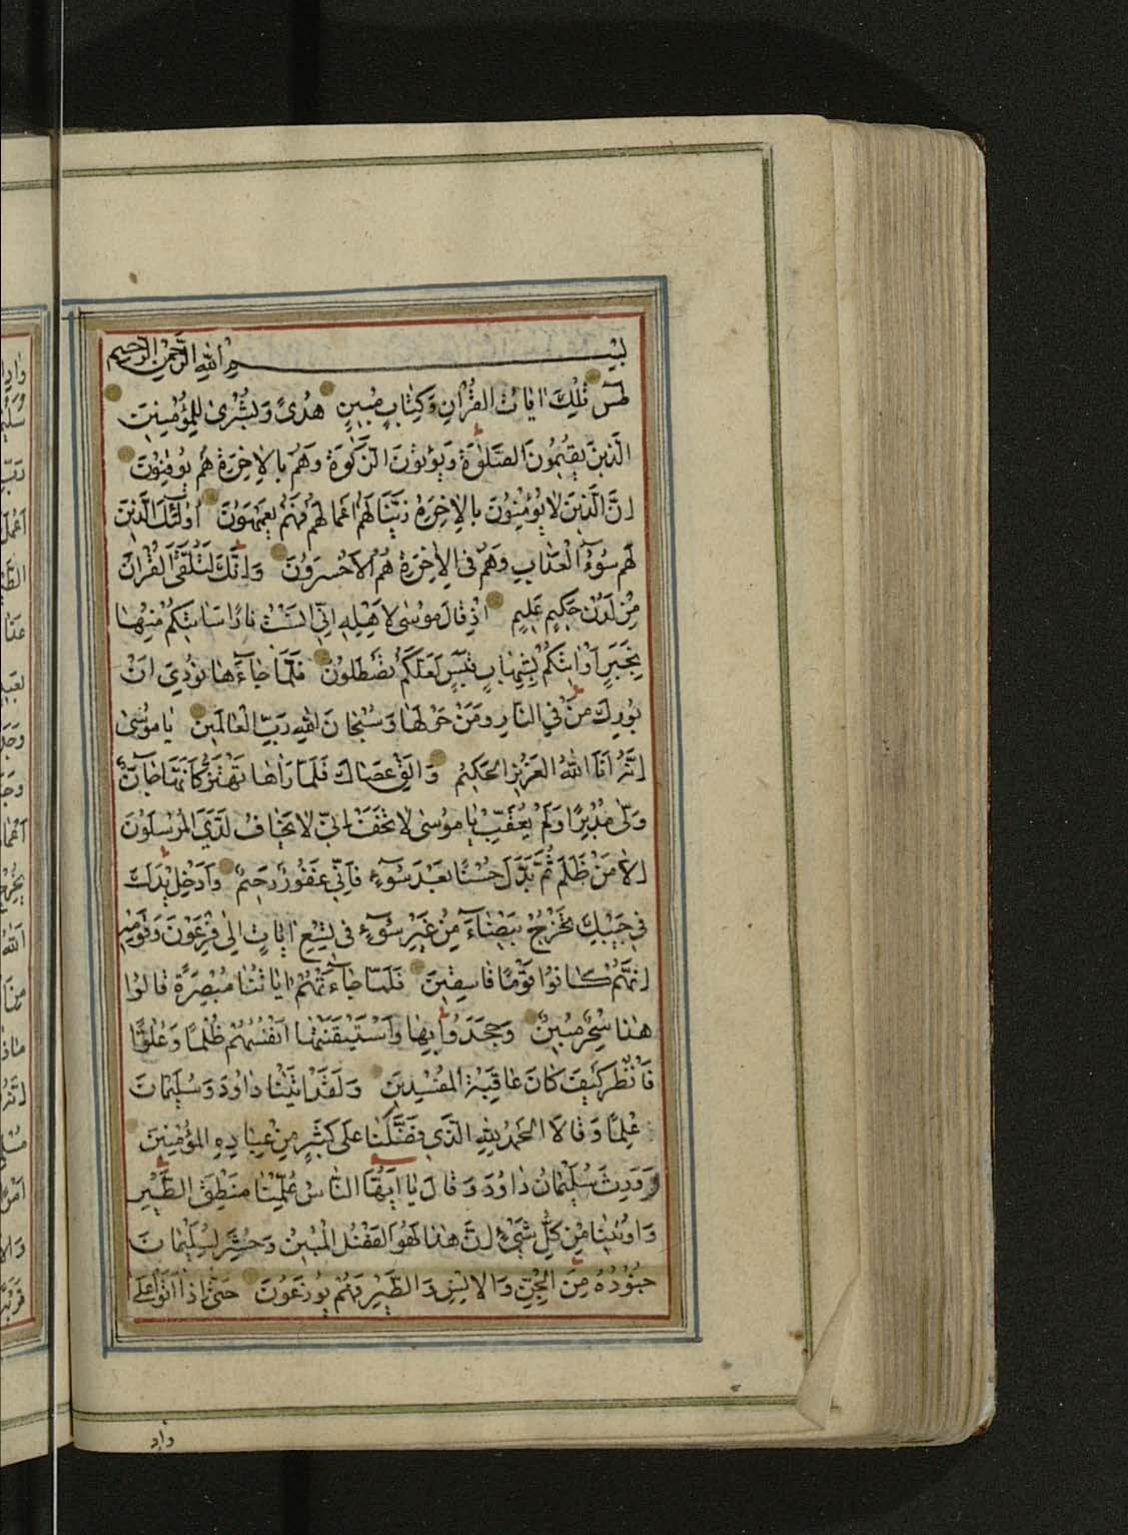 بِسْمِ اللهِ الرَّحْمٰنِ الرَّحِيمِ
طٰسٓ تِلْكَ اٰيَاتُ الْقُرْاٰنِ وَكِتَابٍ مُبِينٍ هُدًى وَبُشْرٰى لِلْمُؤْمِنِينَ
الَّذِينَ يُقِيمُونَ الصَّلٰوةَ وَيُؤْتُونَ الزَّكٰوةَ وَهُمْ بِالْاٰخِرَةِ هُمْ يُوقِنُونَ
اِنَّ الَّذِينَ لَا يُؤْمِنُونَ بِالْاٰخِرَةِ زَيَّنَّا لَهُمْ اَعْمَالَهُمْ فَهُمْ يَعْمَهُونَ اُولٰٓئِكَ الَّذِينَ
لَهُمْ سُوٓءُ الْعَذَابِ وَهُمْ فِى الْاٰخِرَةِ هُمُ الْاَخْسَرُونَ وَاِنَّكَ لَتُلَقَّى الْقُرْاٰنَ
مِنْ لَدُنْ حَكِيمٍ عَلِيمٍ اِذْ قَالَ مُوسٰى لِاَهْلِهٖ اِنِّىٓ اٰنَسْتُ نَارًا سَاٰتِيكُمْ مِنْهَا
بِخَبَرٍ اَوْ اٰتِيكُمْ بِشِهَابٍ قَبَسٍ لَعَلَّكُمْ تَصْطَلُونَ فَلَمَّا جَآءَهَا نُودِىَ اَنْ
بُورِكَ مَنْ فِى النَّارِ وَمَنْ حَوْلَهَا وَسُبْحَانَ اللهِ رَبِّ الْعَالَمِينَ يَا مُوسٰى
اِنَّهُ اَنَا اللهُ الْعَزِيزُ الْحَكِيمُ وَاَلْقِ عَصَاكَ فَلَمَّا رَاٰهَا تَهْتَزُّ كَاَنَّهَا جَآنٌّ
وَلّٰى مُدْبِرًا وَلَمْ يُعَقِّبْ يَا مُوسٰى لَا تَخَفْ اِنِّى لَا يَخَافُ لَدَىَّ الْمُرْسَلُونَ
اِلَّا مَنْ ظَلَمَ ثُمَّ بَدَّلَ حُسْنًا بَعْدَ سُوٓءٍ فَاِنِّى غَفُورٌ رَحِيمٌ وَاَدْخِلْ يَدَكَ
فِى جَيْبِكَ تَخْرُجْ بَيْضَآءَ مِنْ غَيْرِ سُوٓءٍ فِى تِسْعِ اٰيَاتٍ اِلٰى فِرْعَوْنَ وَقَوْمِهٖ
اِنَّهُمْ كَانُوا قَوْمًا فَاسِقِينَ فَلَمَّا جَآءَتْهُمْ اٰيَاتُنَا مُبْصِرَةً قَالُوا
هٰذَا سِحْرٌ مُبِينٌ وَجَحَدُوا بِهَا وَاسْتَيْقَنَتْهَا اَنْفُسُهُمْ ظُلْمًا وَعُلُوًّا
فَانْظُرْ كَيْفَ كَانَ عَاقِبَةُ الْمُفْسِدِينَ وَلَقَدْ اٰتَيْنَا دَاوُدَ وَسُلَيْمَانَ
عِلْمًا وَقَالَا الْحَمْدُ لِلّٰهِ الَّذِى فَضَّلَنَا عَلٰى كَثِيرٍ مِنْ عِبَادِهِ الْمُؤْمِنِينَ
وَوَرِثَ سُلَيْمَانُ دَاوُدَ وَقَالَ يَا اَيُّهَا النَّاسُ عُلِّمْنَا مَنْطِقَ الطَّيْرِ
وَاُوتِينَا مِنْ كُلِّ شَىْءٍ اِنَّ هٰذَا لَهُوَ الْفَضْلُ الْمُبِينُ وَحُشِرَ لِسُلَيْمَانَ
جُنُودُهُ مِنَ الْجِنِّ وَالْاِنْسِ وَالطَّيْرِ فَهُمْ يُوزَعُونَ حَتّٰى اِذَا اَتَوْا عَلٰى
واد